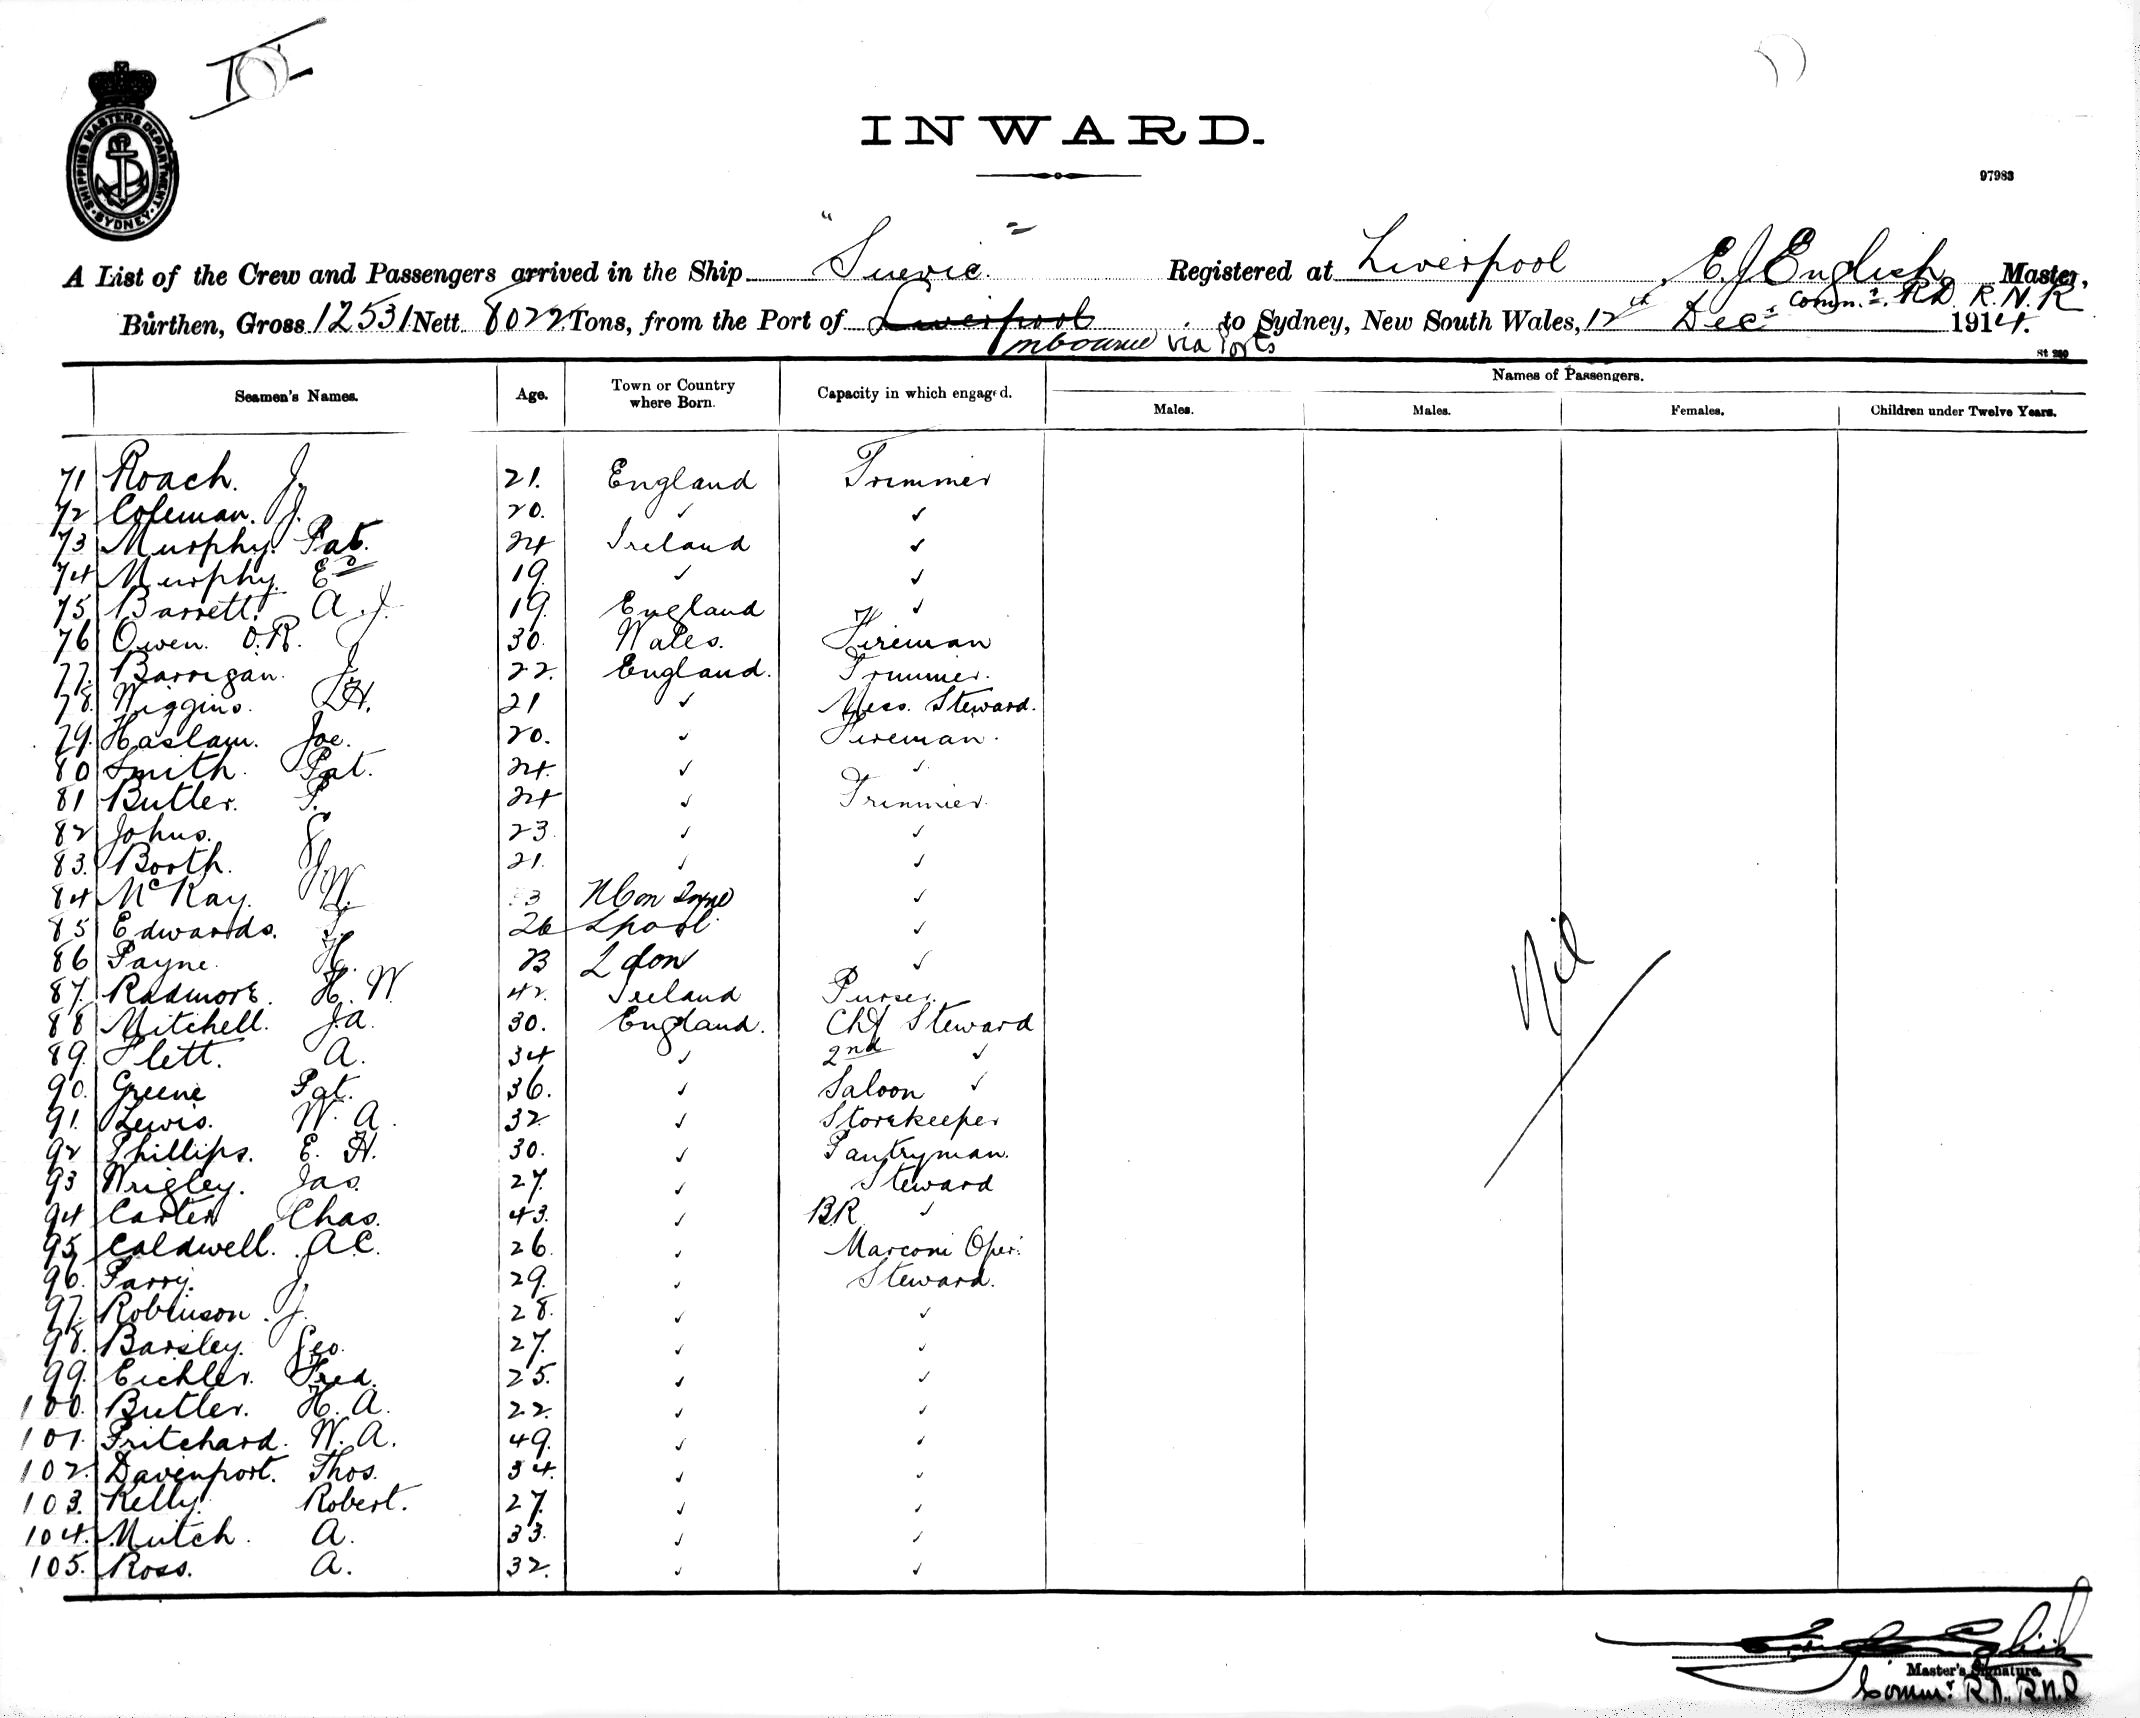 SHIPPING MASTERS DEPARTMENT
SYDNEY
INWARD.
97983
A List of the Crew and Passengers arrived in the Ship "Suevic" Registered at Liverpool E. J. English Master,
Comm.r. R.D. R.N.R
Burthen, Gross 12531 Nett 8022 Tons, from the Port of Liverpool to Sydney, New South Wales, 12th Dec.r 1914.
Mbourne via Ports
Names of Passengers.
Seamen's Names. Age. Town or Country where Born. Capacity in which engaged. Males. Males. Females. Children under Twelve Years.
71 Roach. J. 21. England Trimmer
72 Coleman. J. 20. ✓ ✓
73 Murphy. Pat. 24 Ireland ✓
74 Murphy. Ed 19. ✓ ✓
75 Barrett. A. J. 19. England ✓
76 Owen. O. R. 30. Wales. Fireman
77. Barrigan. J. 22. England. Trimmer.
78. Wiggins. H. 21 ✓ Mess. Steward.
79. Haslam. Joe. 20. ✓ Fireman.
80 Smith. Pat. 24. ✓ ✓
81 Butler. P. 24 ✓ Trimmer.
82 Johns. 23 ✓ ✓
83. Booth. J. 21. ✓ ✓
84 McKay. W. 3 N C on Tyne ✓
85 Edwards. 26 Lpool ✓
86 Payne. H. 23 Ldon ✓
87. Radmore. H. W. 42. Ireland Purser.
88 Mitchell. J. A. 30. England. Chf Steward
89. Flett. A. 34 ✓ 2nd ✓
90. Greene Pat. 36. ✓ Saloon ✓
91. Lewis. W. A. 32 ✓ Storekeeper
92 Phillips. E. H. 30. ✓ Pantryman.
93 Wrigley. Jas. 27. ✓ Steward
94 Carter Chas. 43. ✓ BR ✓
95 Caldwell. A.C. 26. ✓ Marconi Oper.
96. Parry. J. 29. ✓ Steward.
97. Robinson. J. 28. ✓ ✓
98. Barsley. Geo. 27. ✓ ✓
99. Eichler. Fred. 25. ✓ ✓
100. Butler. H. A. 22. ✓ ✓
101. Pritchard. W. A. 49. ✓ ✓
102. Davenport. Thos. 34. ✓ ✓
103. Kelly. Robert. 27. ✓ ✓
104. Mutch. A. 33. ✓ ✓
105. Ross. A. 32. ✓ ✓
Nil
Master's Signature.
Comm.r R.D., R.N.R